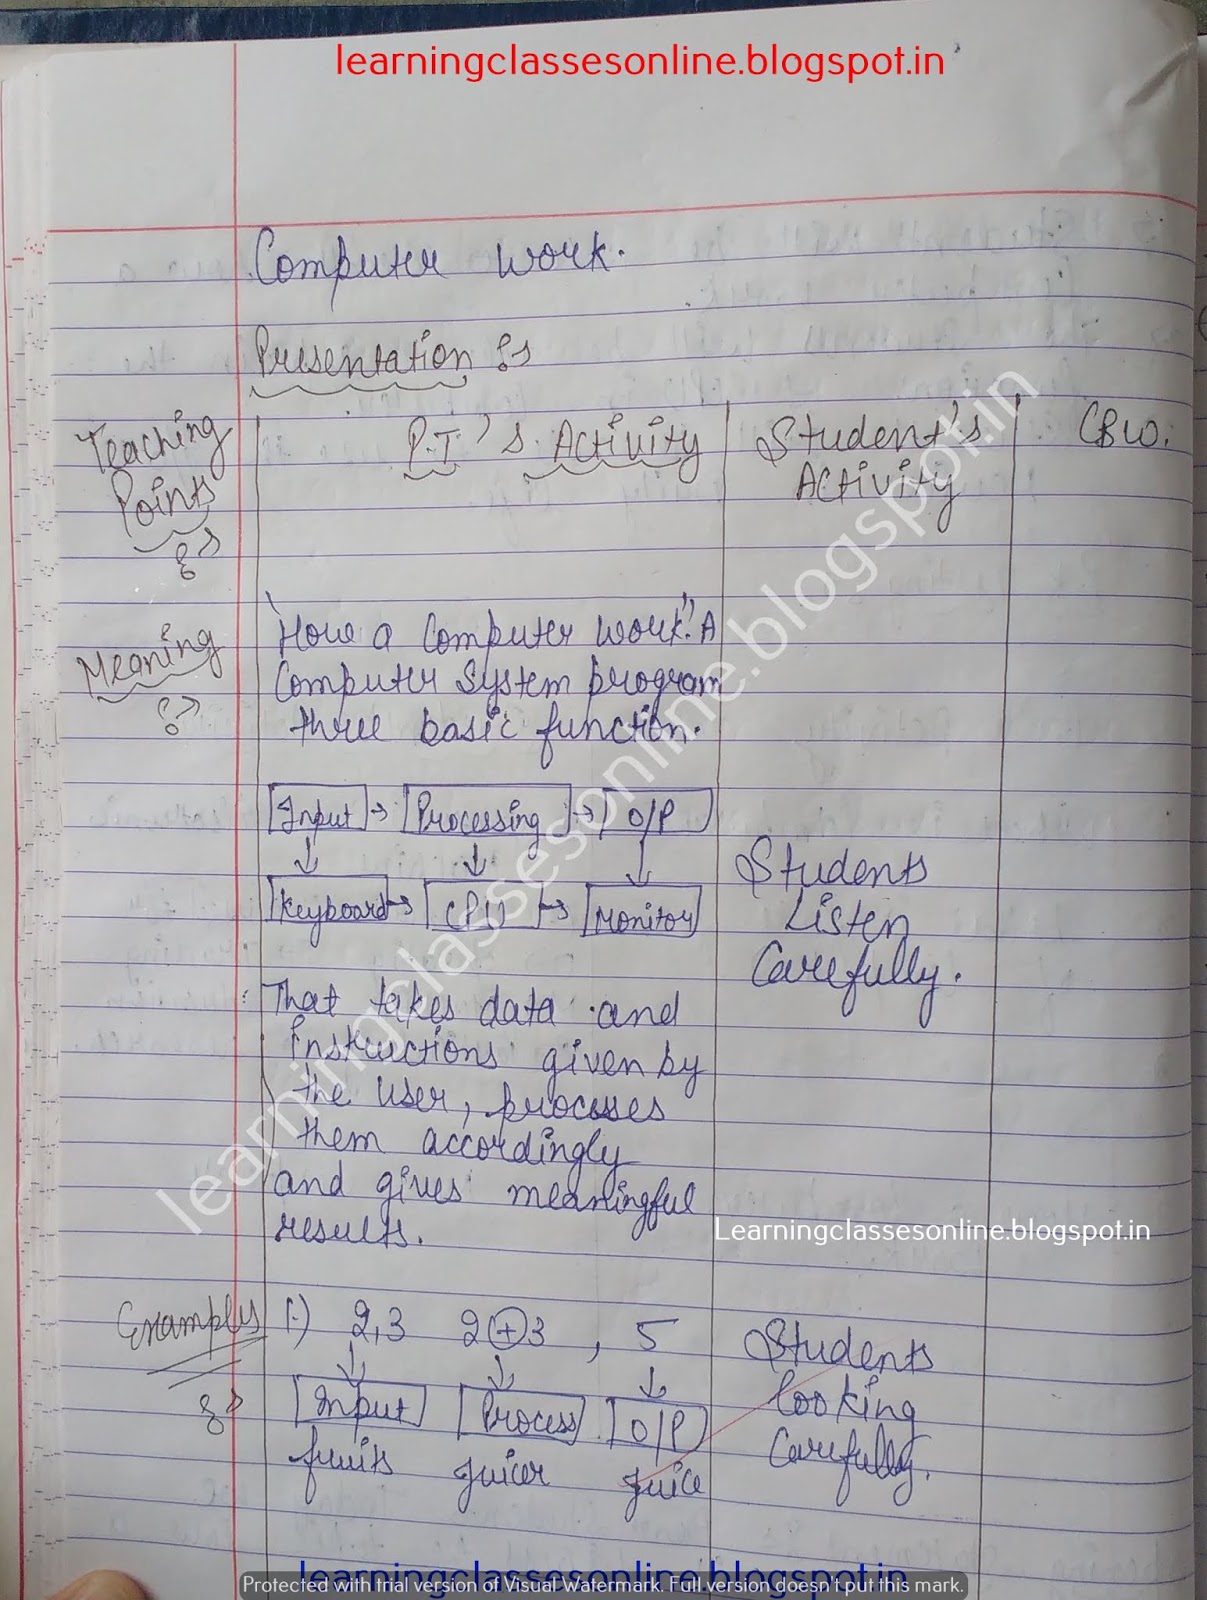 learningclassesonline.blogspot.in
Computer work.
Presentation :-
Teaching Points :-
P.T.'s Activity
Student's Activity
CBW.
Meaning :-
"How a Computer work." A
Computer system program
three basic function.
Input → Processing → O/P
Keyboard → CPU → Monitor
Students
Listen
Carefully.
That takes data and
Instructions given by
the user, processes
them accordingly
and gives meaningful
results.
Learningclassesonline.blogspot.in
Examples :-
1.) 2,3 2+3 , 5
Input Process O/P
fruits Juicer Juice
Students
looking
Carefully.
learningclassesonline.blogspot.in
learningclassesonline.blogspot.in
Protected with trial version of Visual Watermark. Full version doesn't put this mark.